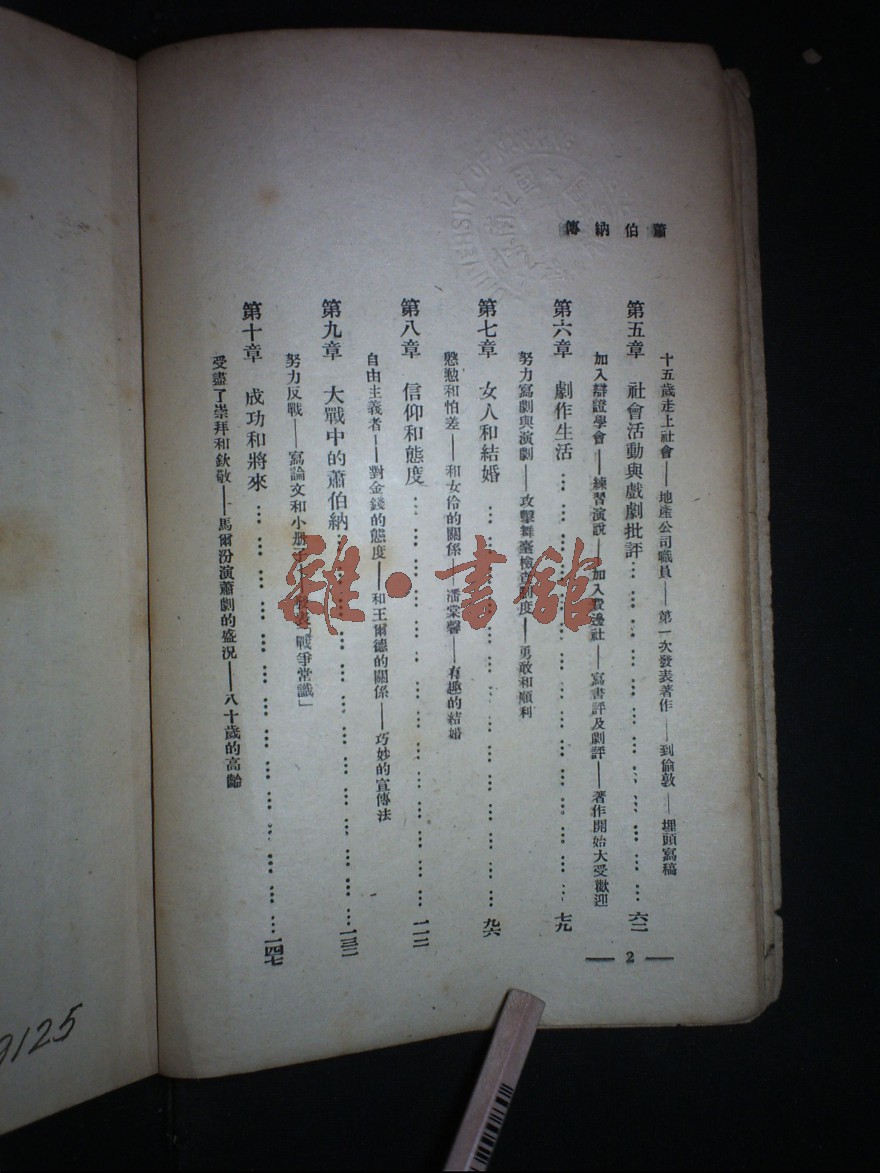 蕭伯納傳
十五歲走上社會——地產公司職員——第一次發表著作——到倫敦——埋頭寫稿
第五章 社會活動與戲劇批評……六二
加入辯證學會——練習演說——加入費邊社——寫書評及劇評——著作開始大受歡迎
第六章 劇作生活……七九
努力寫劇與演劇——攻擊舞臺檢查制度——勇敢和順利
第七章 女人和結婚……九六
慇懃和怕羞——和女伶的關係——潘棠馨——有趣的結婚
第八章 信仰和態度……一一二
自由主義者——對金錢的態度——和王爾德的關係——巧妙的宣傳法
第九章 大戰中的蕭伯納……一三二
努力反戰——寫論文和小册子——發表「戰爭常識」
第十章 成功和將來……一四七
受盡了崇拜和欽敬——馬爾汾演蕭劇的盛況——八十歲的高齡
— 2 —
雜·書館
9125
UNIVERSITY OF